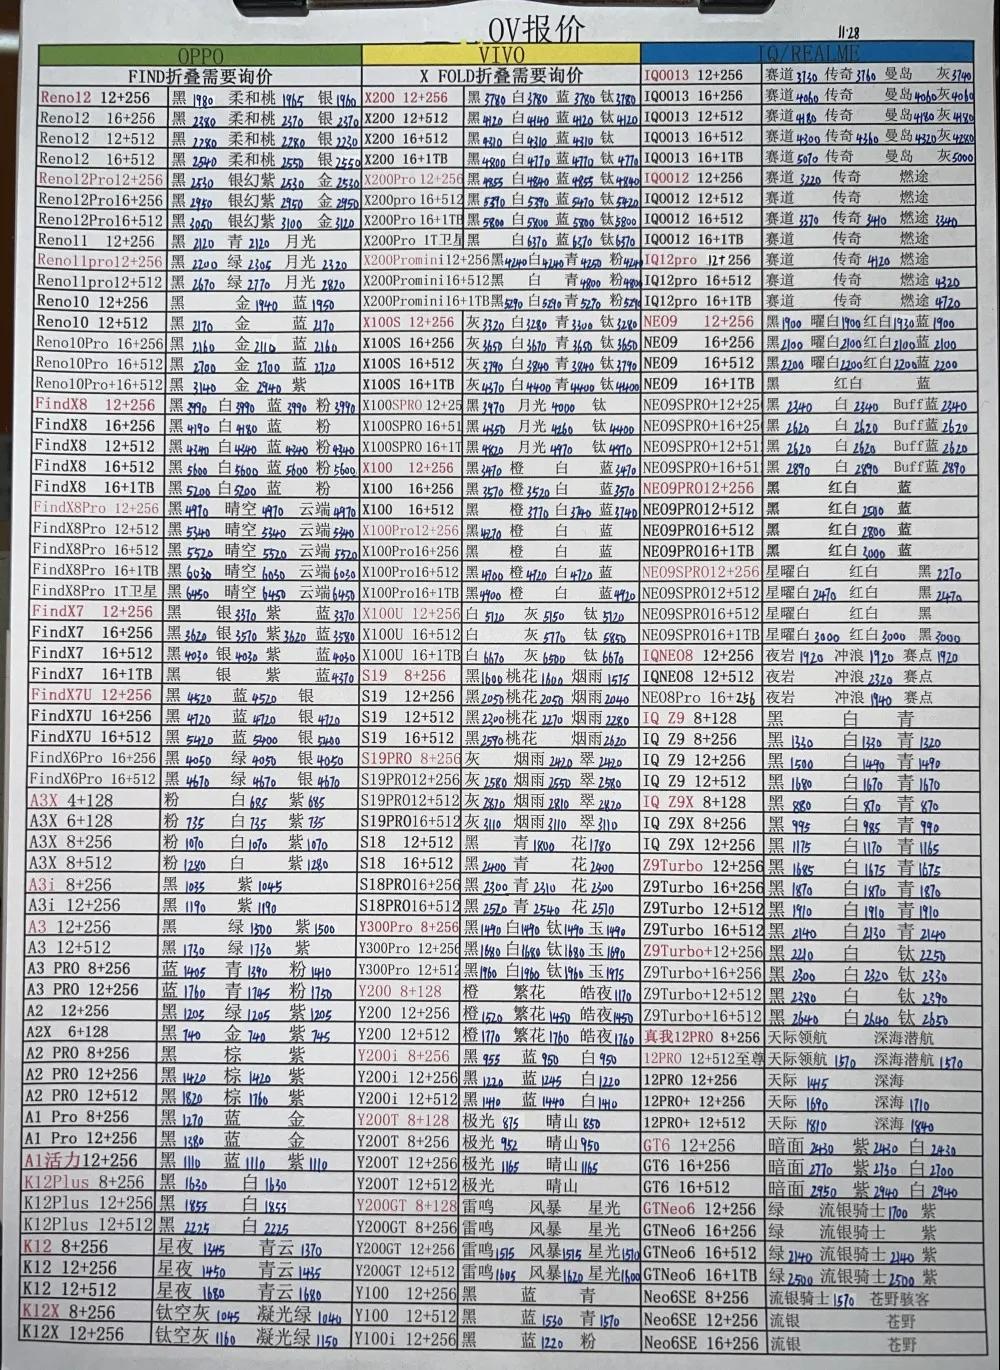 OV报价
11·28
OPPO VIVO IQ/REALME
FIND折叠需要询价 X FOLD折叠需要询价 IQOO13 12+256 赛道3730 传奇3760 曼岛 灰3740
Reno12 12+256 黑1980 柔和桃1965 银1960 X200 12+256 黑3780 白3780 蓝3780 钛3780 IQOO13 16+256 赛道4060 传奇 曼岛4060 灰4060
Reno12 16+256 黑2380 柔和桃2370 银2370 X200 12+512 黑4120 白4140 蓝4120 钛4120 IQOO13 12+512 赛道4180 传奇 曼岛4180 灰4180
Reno12 12+512 黑2280 柔和桃2280 银2230 X200 16+512 黑4310 白4310 蓝4310 钛 IQOO13 16+512 赛道4300 传奇4360 曼岛4320 灰4280
Reno12 16+512 黑2540 柔和桃2550 银2550 X200 16+1TB 黑4800 白4770 蓝4770 钛4770 IQOO13 16+1TB 赛道5070 传奇 曼岛 灰5000
Reno12Pro12+256 黑2530 银幻紫2530 金2530 X200Pro 12+256 黑4855 白4840 蓝4855 钛4840 IQOO12 12+256 赛道3220 传奇 燃途
Reno12Pro16+256 黑2950 银幻紫2950 金2950 X200pro 16+512 黑5390 白5390 蓝5470 钛5420 IQOO12 16+256 赛道 传奇 燃途
Reno12Pro16+512 黑3050 银幻紫3100 金3120 X200Pro 16+1TB 黑5800 白5800 蓝5800 钛5800 IQOO12 16+512 赛道3370 传奇3410 燃途3340
Reno11 12+256 黑2120 青2120 月光 X200Pro 1T卫星 黑 白6370 蓝6370 钛6370 IQOO12 16+1TB 赛道 传奇 燃途
Reno11pro12+256 黑2200 绿2305 月光2320 X200Promini12+256 黑4240 白4240 青4250 粉4240 IQ12pro 12+256 赛道 传奇4120 燃途
Reno11pro12+512 黑2670 绿2770 月光2820 X200Promini16+512 黑 白 青4800 粉4800 IQ12pro 16+512 赛道 传奇 燃途4320
Reno10 12+256 黑 金1940 蓝1950 X200Promini16+1TB 黑5290 白5290 青5270 粉5290 IQ12pro 16+1TB 赛道 传奇 燃途4720
Reno10 12+512 黑2170 金 蓝2170 X100S 12+256 灰3320 白3280 青3300 钛3280 NEO9 12+256 黑1900 曜白1900 红白1930 蓝1900
Reno10Pro 16+256 黑2160 金2110 蓝2160 X100S 16+256 灰3650 白3670 青3650 钛3650 NEO9 16+256 黑2100 曜白2100 红白2100 蓝2100
Reno10Pro 16+512 黑2700 金2700 蓝2720 X100S 16+512 灰3790 白3840 青3840 钛3790 NEO9 16+512 黑2200 曜白2200 红白2200 蓝2200
Reno10Pro+16+512 黑3140 金2940 紫 X100S 16+1TB 灰4370 白4400 青4400 钛4400 NEO9 16+1TB 黑 红白 蓝
FindX8 12+256 黑3990 白3990 蓝3990 粉3990 X100SPRO 12+25 黑3970 月光4000 钛 NEO9SPRO+12+25 黑2340 白2340 Buff蓝2340
FindX8 16+256 黑4190 白4180 蓝 粉 X100SPRO 16+51 黑4350 月光4260 钛4400 NEO9SPRO+16+25 黑2620 白2620 Buff蓝2620
FindX8 12+512 黑4340 白4340 蓝4340 粉4340 X100SPRO 16+1T 黑4820 月光4970 钛4970 NEO9SPRO+12+51 黑2620 白2620 Buff蓝2620
FindX8 16+512 黑5600 白5600 蓝5600 粉5600 X100 12+256 黑3470 橙 白 蓝3470 NEO9SPRO+16+51 黑2890 白2890 Buff蓝2890
FindX8 16+1TB 黑5200 白5200 蓝 粉 X100 16+256 黑3570 橙3520 白 蓝3570 NEO9PRO12+256 黑 红白 蓝
FindX8Pro 12+256 黑4970 晴空4970 云端4970 X100 16+512 黑 橙3770 白3740 蓝3740 NEO9PRO16+256 黑 红白2500 蓝
FindX8Pro 12+512 黑5340 晴空5340 云端5340 X100Pro12+256 黑4270 橙 白 蓝 NEO9PRO12+512 黑 红白2800 蓝
FindX8Pro 16+512 黑5520 晴空5520 云端5520 X100Pro16+256 黑 橙 白 蓝 NEO9PRO16+1TB 黑 红白3000 蓝
FindX8Pro 16+1TB 黑6030 晴空6030 云端6030 X100Pro16+512 黑4700 橙4720 白4720 蓝 NEO9SPRO12+256 星曜白 红白 黑2270
FindX8Pro 1T卫星 黑6450 晴空6450 云端6450 X100Pro16+1TB 黑4900 橙 白 蓝4920 NEO9SPRO16+256 星曜白2470 红白 黑2470
FindX7 12+256 黑 银3370 紫 蓝3370 X100U 12+256 白5120 灰5150 钛5120 NEO9SPRO16+512 星曜白 红白 黑
FindX7 16+256 黑3620 银3570 紫3620 蓝3580 X100U 16+512 白 灰5770 钛5850 NEO9SPRO16+1TB 星曜白3000 红白3000 黑3000
FindX7 16+512 黑4030 银4030 紫 蓝4030 X100U 16+1TB 白6670 灰6500 钛6670 IQNEO8 12+256 夜岩1920 冲浪1920 赛点1920
FindX7 16+1TB 黑 银 紫 蓝4370 S19 8+256 黑1600 桃花1600 烟雨1575 IQNEO8 12+512 夜岩 冲浪2320 赛点
FindX7U 12+256 黑4520 蓝4520 银 S19 12+256 黑2050 桃花2050 烟雨2040 NEO8Pro 16+256 夜岩 冲浪1940 赛点
FindX7U 16+256 黑4720 蓝4720 银4720 S19 12+512 黑2300 桃花2270 烟雨2280 IQ Z9 8+128 黑 白 青
FindX7U 16+512 黑5420 蓝5400 银5400 S19 16+512 黑2590 桃花 烟雨2620 IQ Z9 8+256 黑1330 白1330 青1320
FindX6Pro 16+256 黑4050 绿4050 银4050 S19PRO 8+256 灰 烟雨2420 翠2420 IQ Z9 12+256 黑1500 白1490 青1490
FindX6Pro 16+512 黑4670 绿4670 银4670 S19PRO12+256 灰2580 烟雨2550 翠2580 IQ Z9 12+512 黑1680 白1670 青1670
A3X 4+128 粉 白685 紫685 S19PRO12+512 灰2870 烟雨2810 翠2820 IQ Z9X 8+128 黑880 白870 青870
A3X 6+128 粉735 白735 紫735 S19PRO16+512 灰3110 烟雨3110 翠3110 IQ Z9X 8+256 黑995 白985 青990
A3X 8+256 粉1070 白1070 紫1070 S18 12+512 黑 青1800 花1780 IQ Z9X 12+256 黑1175 白1170 青1165
A3X 8+512 粉1280 白 紫1280 S18 16+512 黑2400 青 花2400 Z9Turbo 12+256 黑1685 白1675 青1675
A3i 8+256 黑1035 紫1045 S18PRO16+256 黑2300 青2310 花2300 Z9Turbo 16+256 黑1870 白1870 青1870
A3i 12+256 黑1190 紫1190 S18PRO16+512 黑2520 青2540 花2510 Z9Turbo 12+512 黑1910 白1910 青1910
A3 12+256 黑 绿1500 紫1500 Y300Pro 8+256 黑1490 白1490 钛1490 玉1490 Z9Turbo 16+512 黑2140 白2130 青2140
A3 12+512 黑1730 绿1730 紫 Y300Pro 12+256 黑1680 白1680 钛1680 玉1690 Z9Turbo+12+256 黑2210 白 钛2250
A3 PRO 8+256 蓝1405 青1390 粉1410 Y300Pro 12+512 黑1960 白1960 钛1960 玉1975 Z9Turbo+16+256 黑2300 白2320 钛2330
A3 PRO 12+256 蓝1760 青1745 粉1750 Y200 8+128 橙 繁花 皓夜1170 Z9Turbo+12+512 黑2380 白 钛2390
A2 12+256 黑1205 绿1205 紫1205 Y200 12+256 橙1520 繁花1450 皓夜1450 Z9Turbo+16+512 黑2640 白2640 钛2650
A2X 6+128 黑740 金740 紫745 Y200 12+512 橙1770 繁花1760 皓夜1760 真我12PRO 8+256 天际领航 深海潜航
A2 PRO 8+256 黑 棕 紫 Y200i 8+256 黑955 蓝950 白950 12PRO 12+512至尊 天际领航1570 深海潜航1570
A2 PRO 12+256 黑1420 棕1420 紫 Y200i 12+256 黑1220 蓝1245 白1220 12PRO 12+256 天际1415 深海
A2 PRO 12+512 黑1820 棕1760 紫 Y200i 12+512 黑1410 蓝1440 白1410 12PRO+ 12+256 天际1690 深海1710
A1 Pro 8+256 黑1270 蓝 金 Y200T 8+128 极光875 晴山850 12PRO+ 12+512 天际1810 深海1840
A1 Pro 12+256 黑1380 蓝 金 Y200T 8+256 极光952 晴山950 GT6 12+256 暗面2430 紫2430 白2430
A1活力12+256 黑1110 蓝1110 紫1110 Y200T 12+256 极光1165 晴山1165 GT6 16+256 暗面2770 紫2730 白2700
K12Plus 8+256 黑1630 白1630 Y200T 12+512 极光 晴山 GT6 16+512 暗面2950 紫2940 白2940
K12Plus 12+256 黑1855 白1855 Y200GT 8+128 雷鸣 风暴 星光 GTNeo6 12+256 绿 流银骑士1700 紫
K12Plus 12+512 黑2225 白2225 Y200GT 8+256 雷鸣 风暴 星光 GTNeo6 16+256 绿 流银骑士 紫
K12 8+256 星夜1345 青云1370 Y200GT 12+256 雷鸣1515 风暴1515 星光1510 GTNeo6 16+512 绿2140 流银骑士2140 紫
K12 12+256 星夜1450 青云1435 Y200GT 12+512 雷鸣1605 风暴1620 星光1600 GTNeo6 16+1TB 绿2500 流银骑士2500 紫
K12 12+512 星夜1680 青云1680 Y100 12+256 黑 蓝 青 Neo6SE 8+256 流银骑士1570 苍野骇客
K12X 8+256 钛空灰1045 凝光绿1040 Y100 12+512 黑 蓝1530 青1570 Neo6SE 12+256 流银 苍野
K12X 12+256 钛空灰1160 凝光绿1150 Y100i 12+256 黑 蓝1220 粉 Neo6SE 16+256 流银 苍野